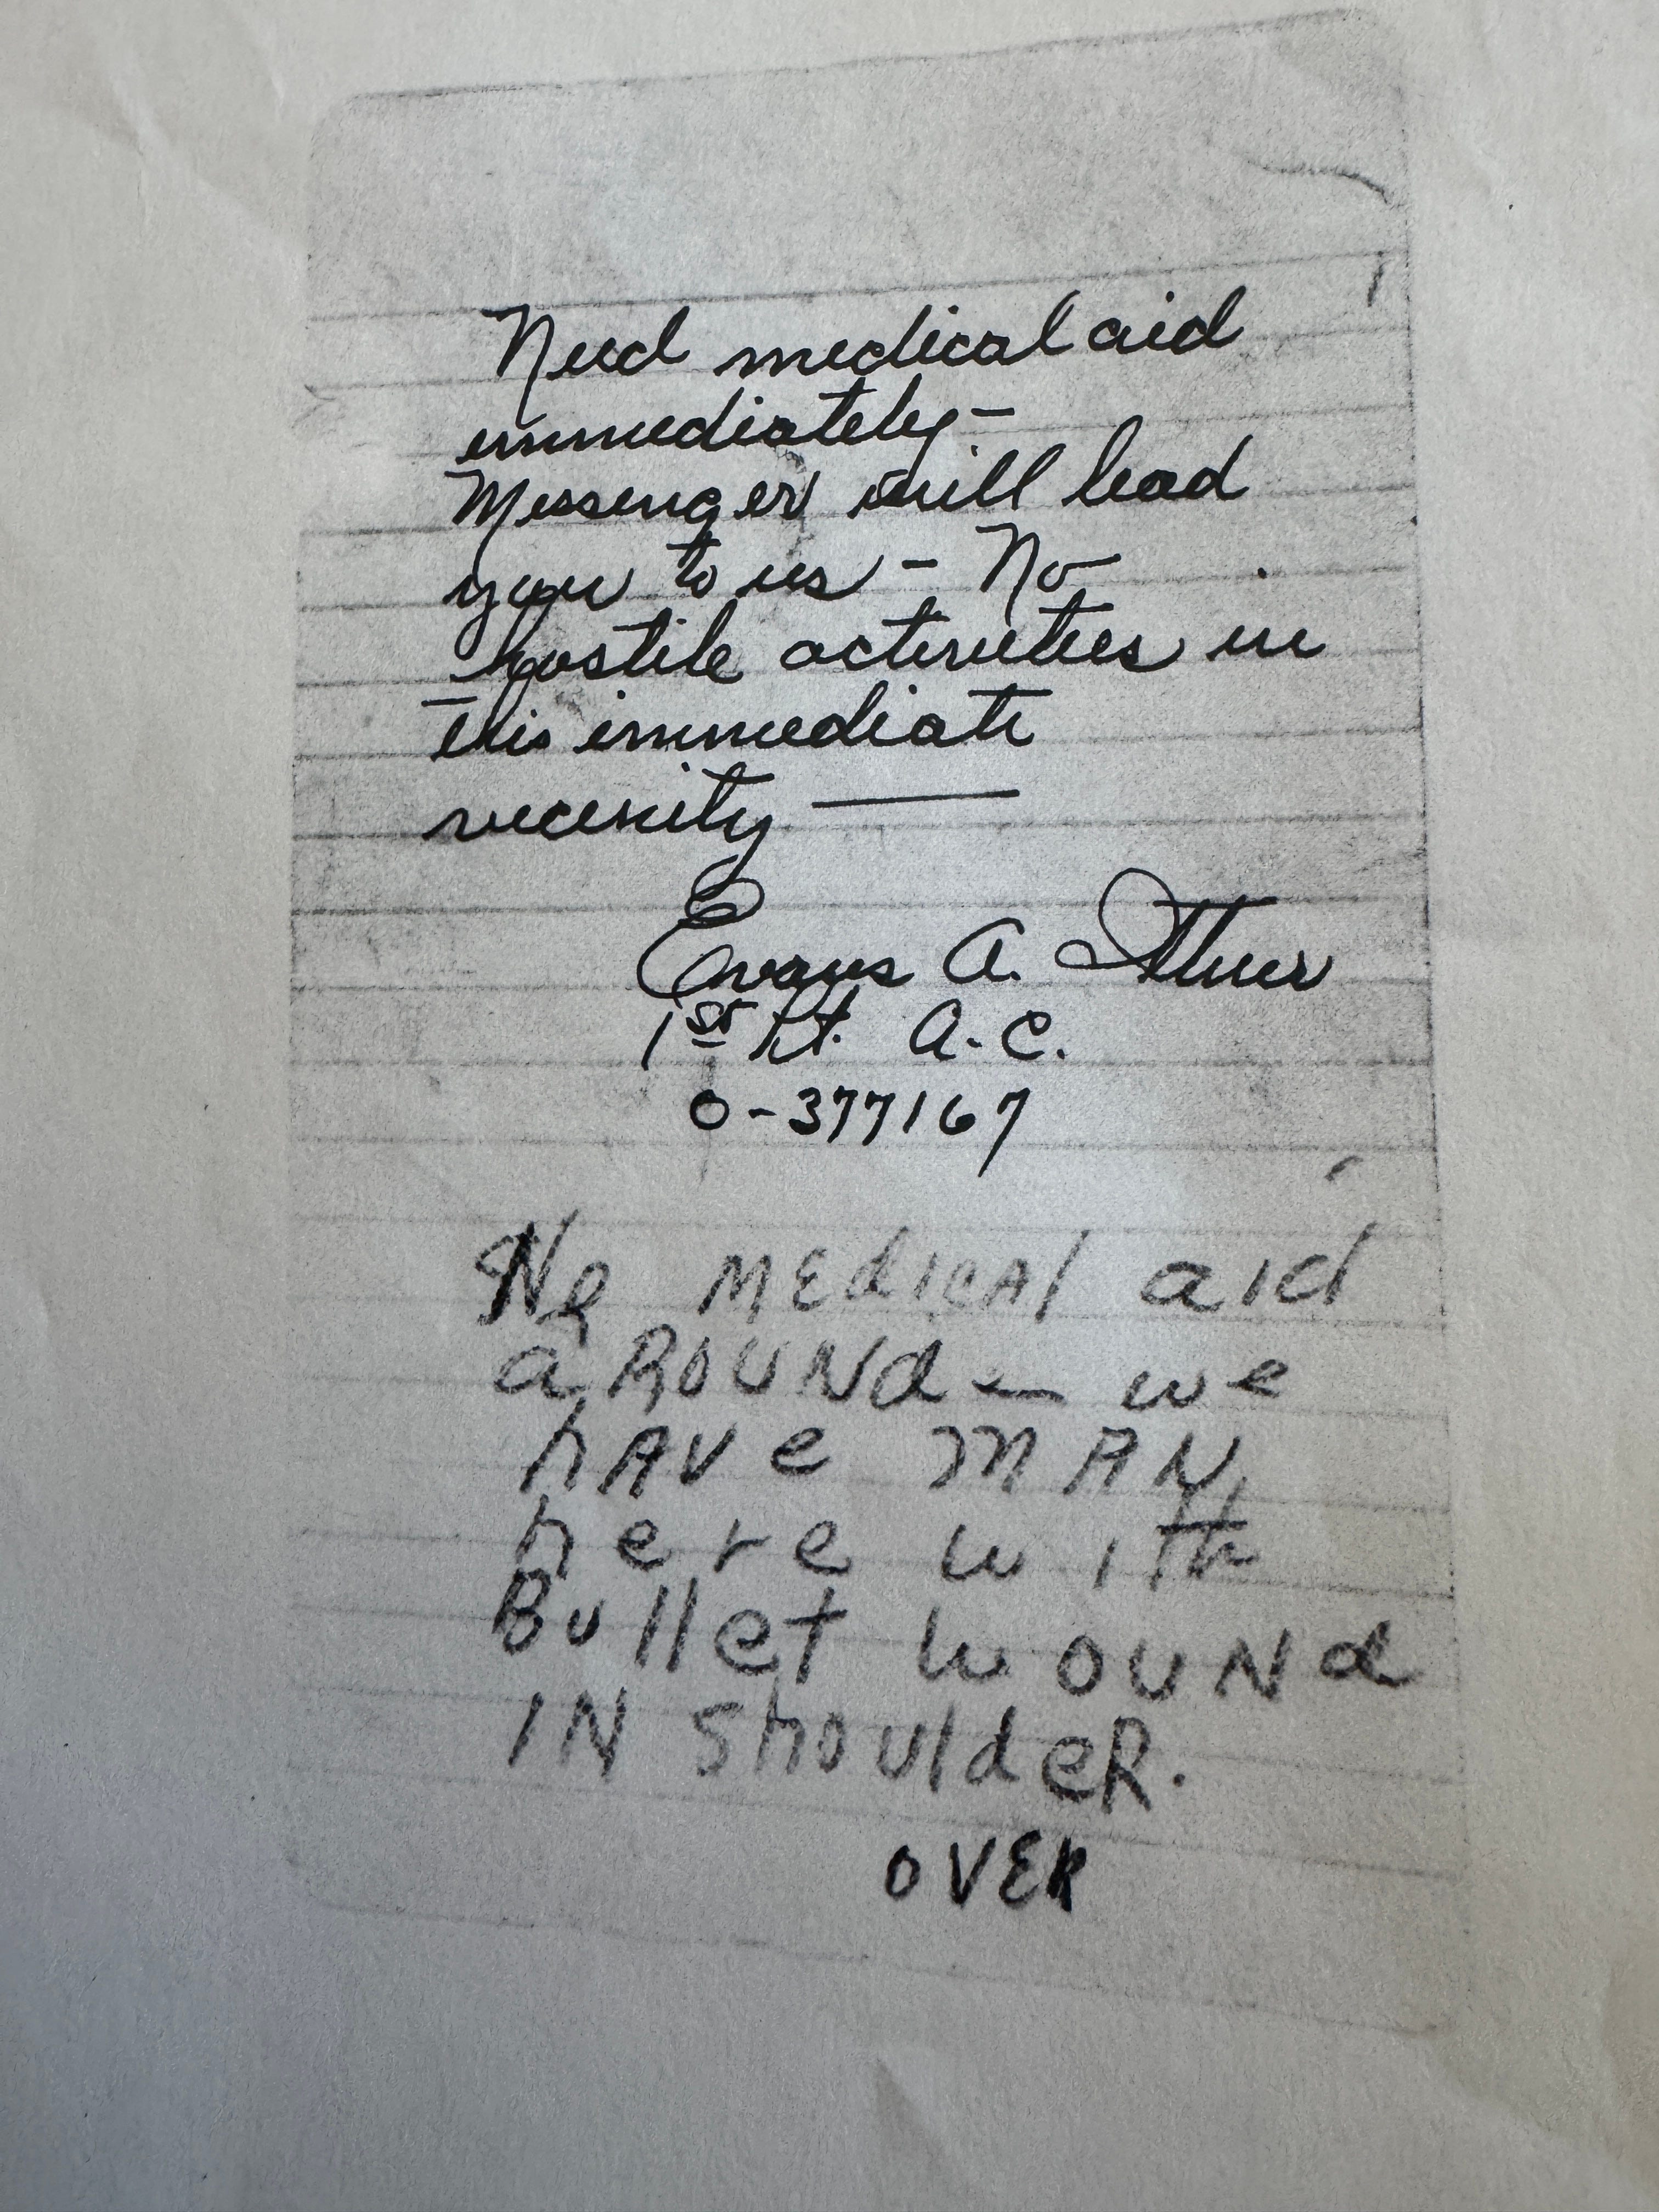 Need medical aid
immediately -
Messenger will lead
you to us - No
hostile activities in
this immediate
vicinity —
Evans A.
1st Lt. A.C.
0-377167
No MEdICAl aid
aROUNd — we
hAVe MAN
here with
Bullet wOUNd
IN shouldeR.
OVER